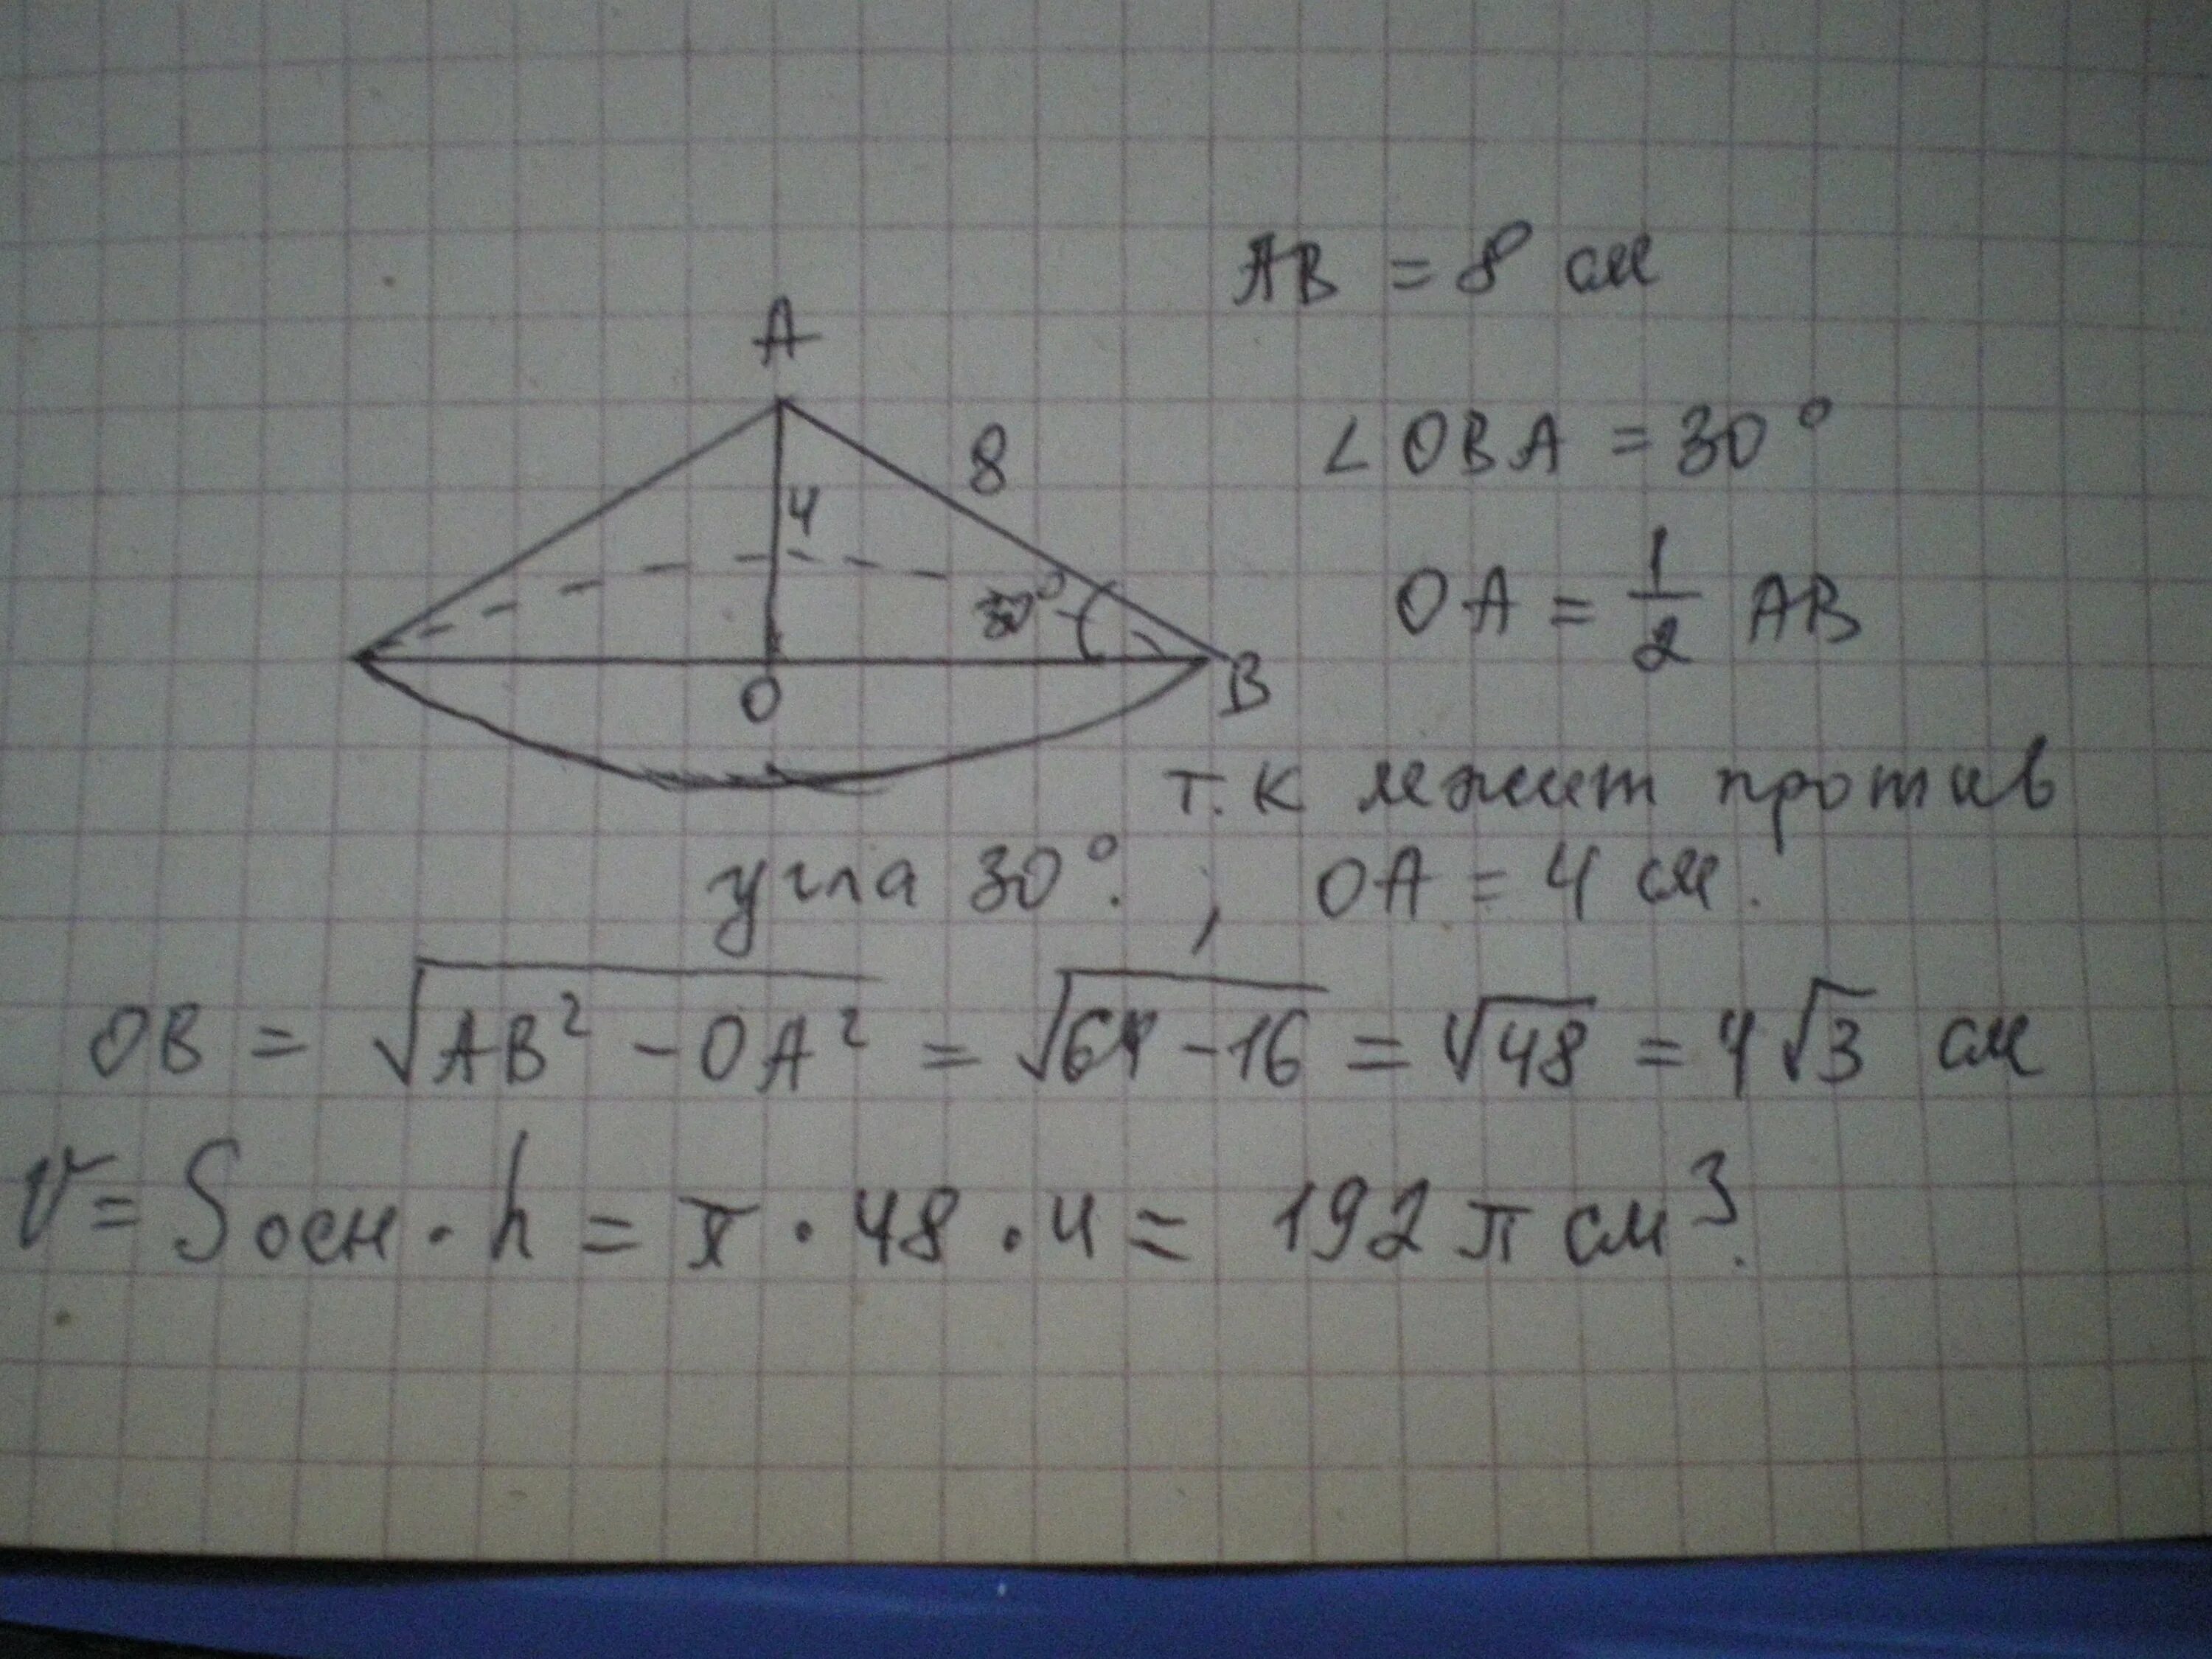 AB = 8 см
A
8
∠OBA = 30°
4
30°
OA = 1/2 AB
O
B
т.к лежит против
угла 30°. , OA = 4 см.
OB = √(AB² - OA²) = √(64 - 16) = √48 = 4√3 см
V = Sосн · h = π · 48 · 4 = 192 π см³.